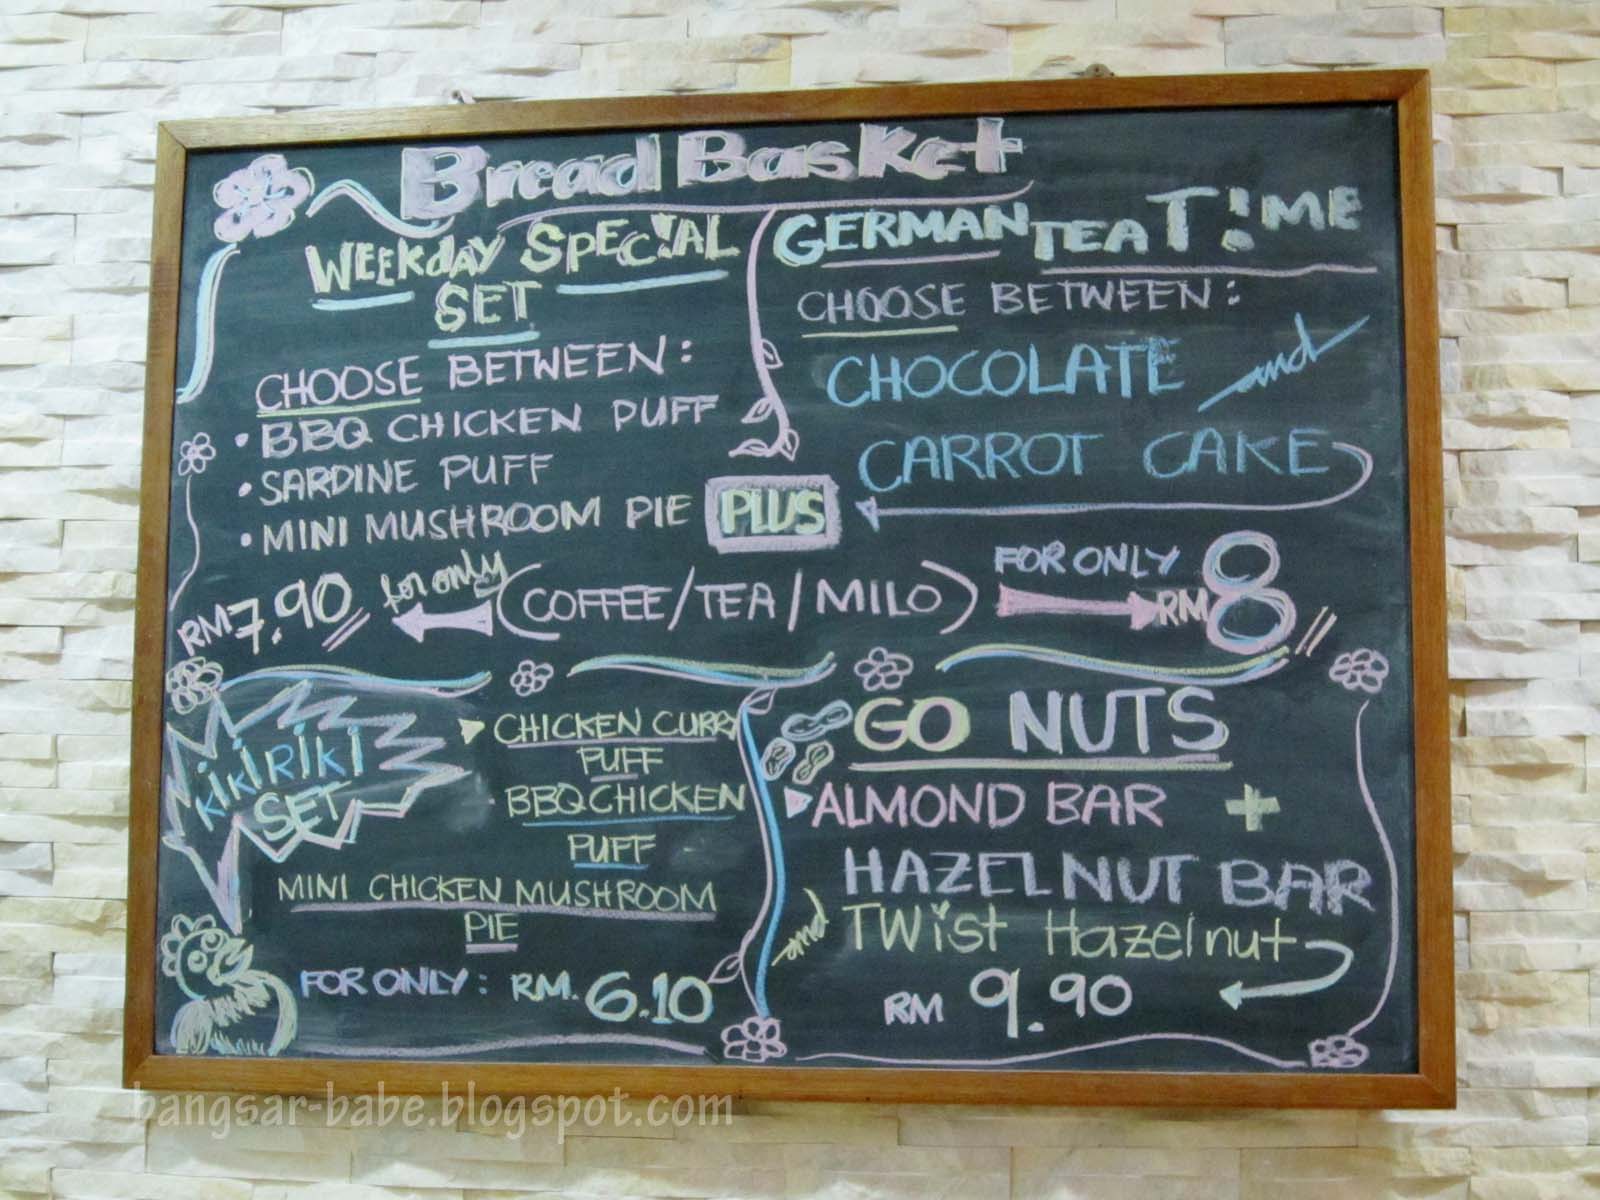 Bread Basket
WEEKDAY SPEC!AL
SET
CHOOSE BETWEEN:
• BBQ CHICKEN PUFF
• SARDINE PUFF
• MINI MUSHROOM PIE
PLUS
GERMAN TEA T!ME
CHOOSE BETWEEN:
CHOCOLATE and
CARROT CAKE
RM 7.90 for only (COFFEE/TEA/MILO) FOR ONLY RM 8
KIKIRIKI
SET
CHICKEN CURRY
PUFF
BBQ CHICKEN
PUFF
MINI CHICKEN MUSHROOM
PIE
FOR ONLY: RM. 6.10
GO NUTS
ALMOND BAR +
HAZELNUT BAR
and TWist Hazelnut
RM 9.90
bangsar-babe.blogspot.com